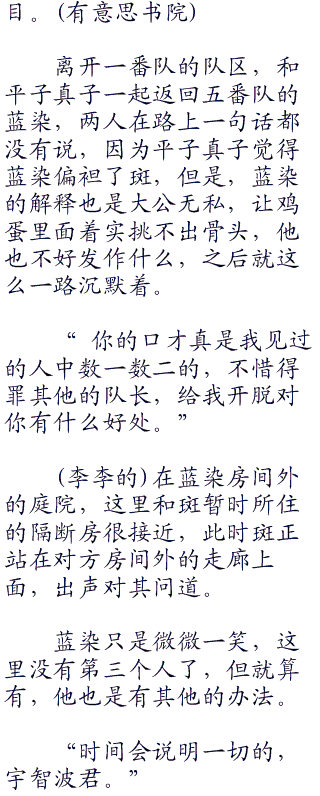 目。(有意思书院)
离开一番队的队区，和
平子真子一起返回五番队的
蓝染，两人在路上一句话都
没有说，因为平子真子觉得
蓝染偏袒了斑，但是，蓝染
的解释也是大公无私，让鸡
蛋里面着实挑不出骨头，他
也不好发作什么，之后就这
么一路沉默着。
“ 你的口才真是我见过
的人中数一数二的，不惜得
罪其他的队长，给我开脱对
你有什么好处。”
(李李的)在蓝染房间外
的庭院，这里和斑暂时所住
的隔断房很接近，此时斑正
站在对方房间外的走廊上
面，出声对其问道。
蓝染只是微微一笑，这
里没有第三个人了，但就算
有，他也是有其他的办法。
“时间会说明一切的，
宇智波君。”